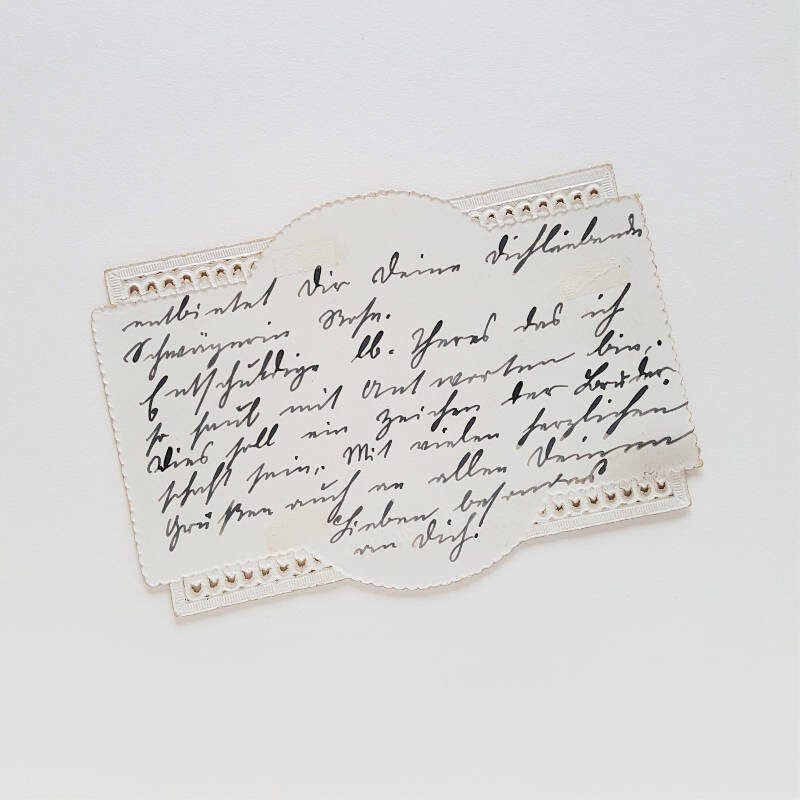 entbietet Dir Deine Dichliebende
Schwägerin Rosa.
Entschuldige lb. Theres das ich
so faul mit Antworten bin.
Dies soll ein Zeichen der Bruder-
schaft sein. Mit vielen herzlichen
Grüßen auch an allen Deinen
Lieben besonders
an Dich.